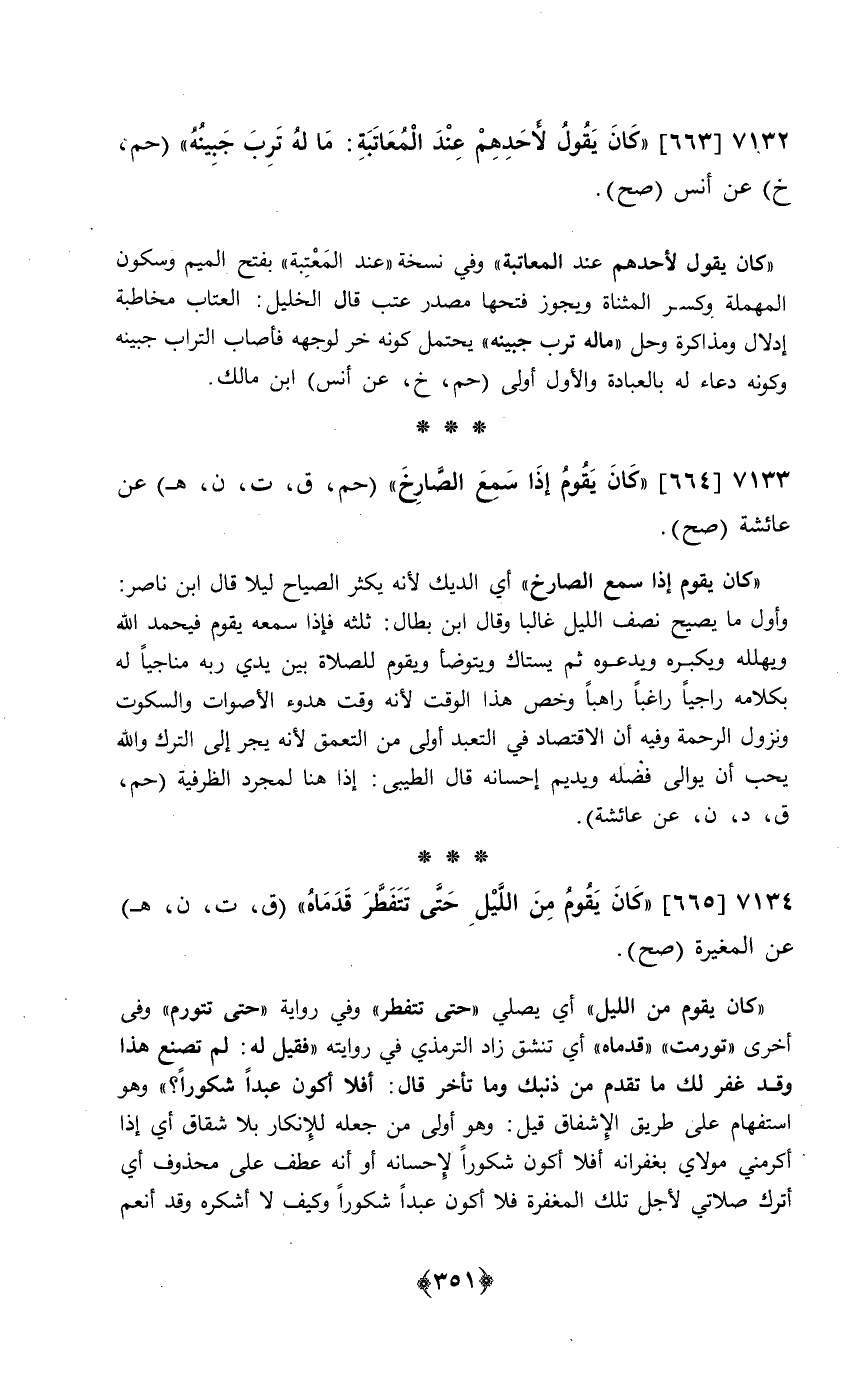 ٧١٣٢ [٦٦٣] «كَانَ يَقُولُ لأَحَدِهِمْ عِنْدَ الْمُعَاتَبَةِ: مَا لهُ تَرِبَ جَبِينُهُ» (حم،
خ) عن أنس (صح).
«كان يقول لأحدهم عند المعاتبة» وفي نسخة «عند المَعْتِبة» بفتح الميم وسكون
المهملة وكسر المثناة ويجوز فتحها مصدر عتب قال الخليل: العتاب مخاطبة
إدلال ومذاكرة وحل «ماله ترب جبينه» يحتمل كونه خر لوجهه فأصاب التراب جبينه
وكونه دعاء له بالعبادة والأول أولى (حم، خ، عن أنس) ابن مالك.
* * *
٧١٣٣ [٦٦٤] «كَانَ يَقُومُ إذَا سَمِعَ الصَّارِخَ» (حم، ق، ت، ن، هـ) عن
عائشة (صح).
«كان يقوم إذا سمع الصارخ» أي الديك لأنه يكثر الصياح ليلا قال ابن ناصر:
وأول ما يصيح نصف الليل غالبا وقال ابن بطال: ثلثه فإذا سمعه يقوم فيحمد الله
ويهلله ويكبره ويدعوه ثم يستاك ويتوضأ ويقوم للصلاة بين يدي ربه مناجياً له
بكلامه راجياً راغباً راهباً وخص هذا الوقت لأنه وقت هدوء الأصوات والسكوت
ونزول الرحمة وفيه أن الاقتصاد في التعبد أولى من التعمق لأنه يجر إلى الترك والله
يحب أن يوالى فضله ويديم إحسانه قال الطيبى: إذا هنا لمجرد الظرفية (حم،
ق، د، ن، عن عائشة).
* * *
٧١٣٤ [٦٦٥] «كَانَ يَقُومُ مِنَ اللَّيْلِ حَتَّى تَتَفَطَّرَ قَدَمَاهُ» (ق، ت، ن، هـ)
عن المغيرة (صح).
«كان يقوم من الليل» أي يصلي «حتى تتفطر» وفي رواية «حتى تتورم» وفى
أخرى «تورمت» «قدماه» أي تنشق زاد الترمذي في روايته «فقيل له: لم تصنع هذا
وقد غفر لك ما تقدم من ذنبك وما تأخر قال: أفلا أكون عبداً شكوراً؟» وهو
استفهام على طريق الإشفاق قيل: وهو أولى من جعله للإنكار بلا شقاق أي إذا
أكرمني مولاي بغفرانه أفلا أكون شكوراً لإحسانه أو أنه عطف على محذوف أي
أترك صلاتي لأجل تلك المغفرة فلا أكون عبداً شكوراً وكيف لا أشكره وقد أنعم
﴿٣٥١﴾